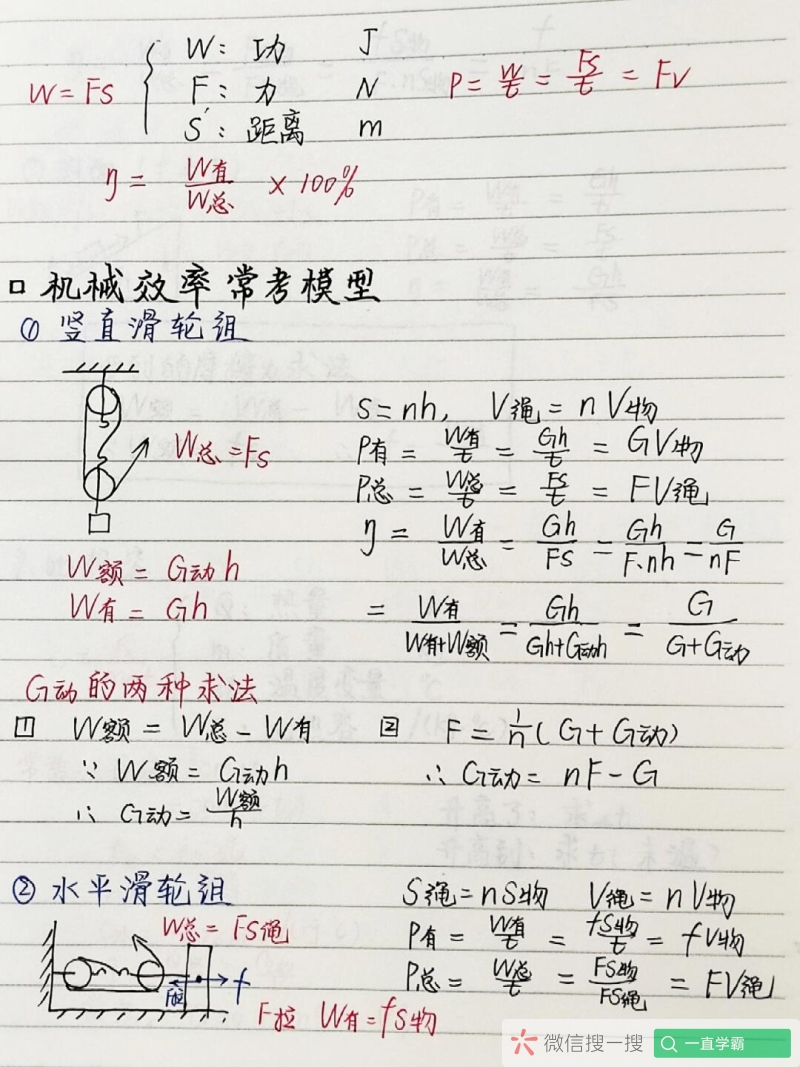 W=FS { W: 功 J
F: 力 N
S: 距离 m
P=W/t=FS/t=FV
η=W有/W总×100%
机械效率常考模型
① 竖直滑轮组
W总=FS
W额=G动h
W有=Gh
S=nh, V绳=nV物
P有=W有/t=Gh/t=GV物
P总=W总/t=FS/t=FV绳
η=W有/W总=Gh/FS=Gh/F·nh=G/nF
=W有/W有+W额=Gh/Gh+G动h=G/G+G动
G动的两种求法
1 W额=W总-W有
∵ W额=G动h
∴ G动=W额/h
2 F=1/n(G+G动)
∴ G动=nF-G
② 水平滑轮组
W总=FS绳
f
F拉 W有=fS物
S绳=nS物 V绳=nV物
P有=W有/t=fS物/t=fV物
P总=W总/t=FS物/FS绳=FV绳
微信搜一搜 一直学霸